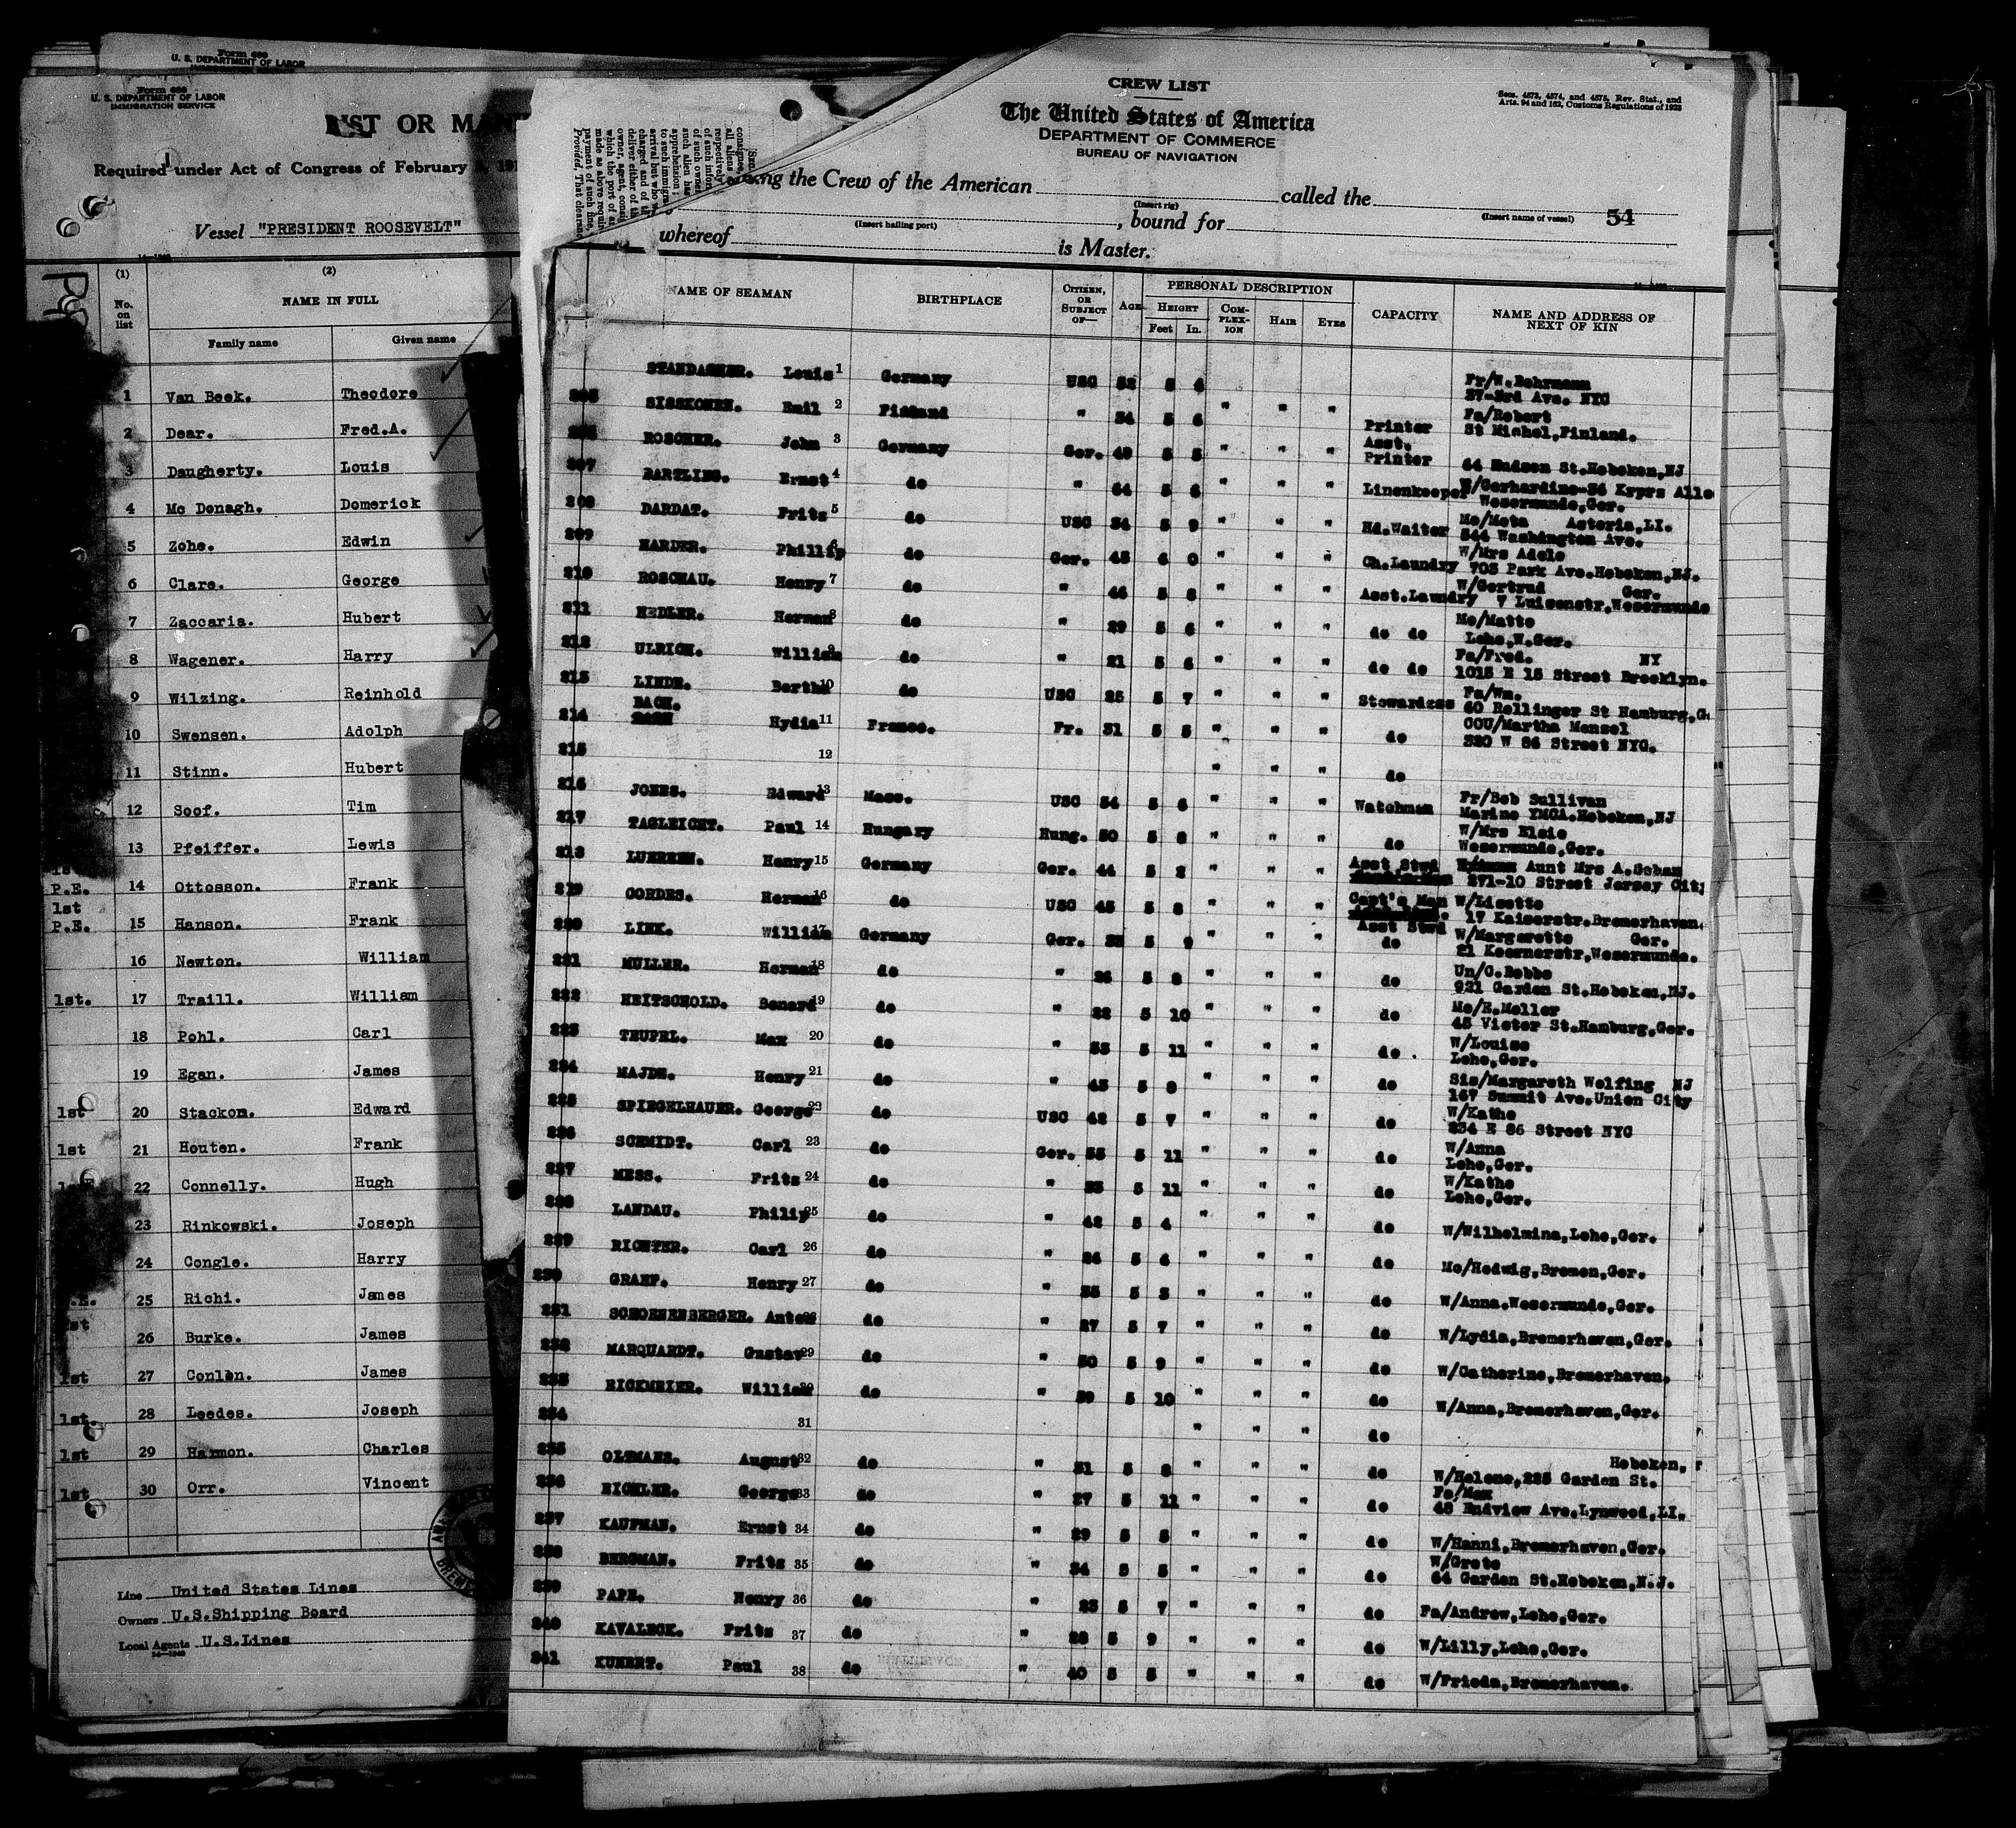 Form 689
U. S. DEPARTMENT OF LABOR
Form 689
U. S. DEPARTMENT OF LABOR
IMMIGRATION SERVICE
LIST OR MAN
Required under Act of Congress of February
Vessel "PRESIDENT ROOSEVELT"
(1) (2)
No. on list
NAME IN FULL
Family name Given name
1 Van Beek. Theodore
2 Dear. Fred.A.
3 Daugherty. Louis
4 Mc Donagh. Domerick
5 Zohe. Edwin
6 Clare. George
7 Zaccaria. Hubert
8 Wagener. Harry
9 Wilzing. Reinhold
10 Swensen. Adolph
11 Stinn. Hubert
12 Soof. Tim
13 Pfeiffer. Lewis
P.E. 14 Ottosson. Frank
1st
P.E. 15 Hanson. Frank
16 Newton. William
1st. 17 Traill. William
18 Pohl. Carl
19 Egan. James
1st 20 Stackon. Edward
1st 21 Houten. Frank
22 Connelly. Hugh
23 Rinkowski. Joseph
24 Congle. Harry
25 Richi. James
26 Burke. James
1st 27 Conlon. James
1st. 28 Leedes. Joseph
1st 29 Harmon. Charles
1st 30 Orr. Vincent
Line United States Lines
Owners U.S.Shipping Board
Local Agents U.S.Lines
CREW LIST
The United States of America
DEPARTMENT OF COMMERCE
BUREAU OF NAVIGATION
Secs. 4573, 4574, and 4575, Rev. Stat., and
Arts. 94 and 162, Customs Regulations of 1923
the Crew of the American called the
(Insert rig) (Insert name of vessel) 54
(Insert hailing port) , bound for
whereof is Master.
NAME OF SEAMAN BIRTHPLACE CITIZEN, OR SUBJECT OF— AGE PERSONAL DESCRIPTION CAPACITY NAME AND ADDRESS OF NEXT OF KIN
HEIGHT COMPLEXION HAIR EYES
Feet In.
Louis 1 Germany USC 52 5 4 Fr/W.Behrmann
37-3rd Ave. NYC
205 SISSKONEN. Emil 2 Finland " 34 5 6 " " " Printer Fa/Robert
St Michel,Finland.
206 ROSCHER. John 3 Germany Ger. 49 5 5 " " " Asst. Printer 64 Hudson St.Hoboken,NJ
207 BARTLING. Ernst 4 do " 64 5 6 " " " Linenkeeper
Wesermunde,Ger.
208 DARDAT. Fritz 5 do USC 34 5 9 " " " Hd.Waiter Mo/Meta Astoria,LI.
544 Washington Ave.
209 HARDER. Phillip 6 do Ger. 45 6 0 " " " Ch.Laundry W/Mrs Adele
705 Park Ave.Hoboken,NJ.
210 ROSCHAU. Henry 7 do " 44 5 8 " " " Asst.Laundry W/Gertrud Ger.
7 Luisenstr,Wesermunde
211 HEDLER. Herman 8 do " 29 5 6 " " " do do Mo/Matte
Lehe,W.Ger.
212 ULRICH. William 9 do " 21 5 6 " " " do do Fa/Fred. NY
1015 E 15 Street Brooklyn.
213 LINDE. Bertha 10 do USC 25 5 7 " " " Stewardess Fa/Wm.
60 Rellinger St Hamburg,G
214 BACH. Hydia 11 France. Fr. 31 5 5 " " " do COU/Martha Mensel
320 W 86 Street NYC.
215 12 " " " do
216 JONES. Edward 13 Mass. USC 54 5 6 " " " Watchman Fr/Bob Sullivan
Marine YMCA.Hoboken,NJ
217 TAGLEICHT. Paul 14 Hungary Hung. 50 5 8 " " " do W/Mrs Elsie
Wesermunde,Ger.
218 LUERSEN. Henry 15 Germany Ger. 44 5 2 " " " Asst Stwd Aunt Mrs A.Schan
271-10 Street Jersey City
219 CORDES. Herman 16 do USC 45 5 8 " " " Capt's Man W/Lisette
17 Kaiserstr.Bremerhaven.
220 LINK. William 17 Germany Ger. 33 5 9 " " " Asst Stwd do W/Margarette Ger.
21 Koernerstr,Wesermunde.
221 MULLER. Herman 18 do " 26 5 8 " " " do Un/C.Bebbe
921 Garden St.Hoboken,NJ.
222 HEITSCHOLD. Benard 19 do " 22 5 10 " " " do Mo/E.Moller
45 Victor St.Hamburg,Ger.
223 TEUFEL. Max 20 do " 53 5 11 " " " do . W/Louise
Lehe,Ger.
224 MAJDE. Henry 21 do " 45 5 8 " " " do Sis/Margareth Wolfing NJ
167 Summit Ave.Union City
225 SPIEGELHAUER. George 22 do USC 42 5 7 " " " do W/Kathe
234 E 86 Street NYC
226 SCHMIDT. Carl 23 do Ger. 55 5 11 " " " do W/Anna
Lehe,Ger.
227 MESS. Fritz 24 do " 33 5 11 " " " do W/Kathe
Lehe,Ger.
228 LANDAU. Philip 25 do " 42 5 4 " " " do W/Wilhelmina,Lehe,Ger.
229 RICHTER. Carl 26 do " 24 5 4 " " " do Mo/Hedwig,Bremen,Ger.
230 GRAEF. Henry 27 do " 35 5 5 " " " do W/Anna.Wesermunde,Ger.
231 SCHOENENBERGER. Anton 28 do " 27 5 7 " " " do W/Lydia,Bremerhaven,Ger.
232 MARQUARDT. Gustav 29 do " 50 5 9 " " " do W/Catherine,Bremerhaven.
233 RICKMEIER. William 30 do " 39 5 10 " " " do W/Anna,Bremerhaven,Ger.
234 31 " " " do
235 OLTMANS. August 32 do " 31 5 8 " " " do Hoboken,
W/Helene,225 Garden St.
236 EICHLER. George 33 do " 27 5 11 " " " do Fa/Max
48 Endview Ave.Lynwood,LI.
237 KAUFMAN. Ernst 34 do " 29 5 5 " " " do W/Hanni,Bremerhaven,Ger.
238 BERGMAN. Fritz 35 do " 34 5 5 " " " do W/Grete
64 Garden St.Hoboken,N.J.
239 PAPE. Henry 36 do " 23 5 7 " " " do Fa/Andrew,Lehe,Ger.
240 KAVALECK. Fritz 37 do " 28 5 9 " " " do W/Lilly,Lehe,Ger.
241 KUNERT. Paul 38 do " 40 5 5 " " " do W/Frieda,Bremerhaven.